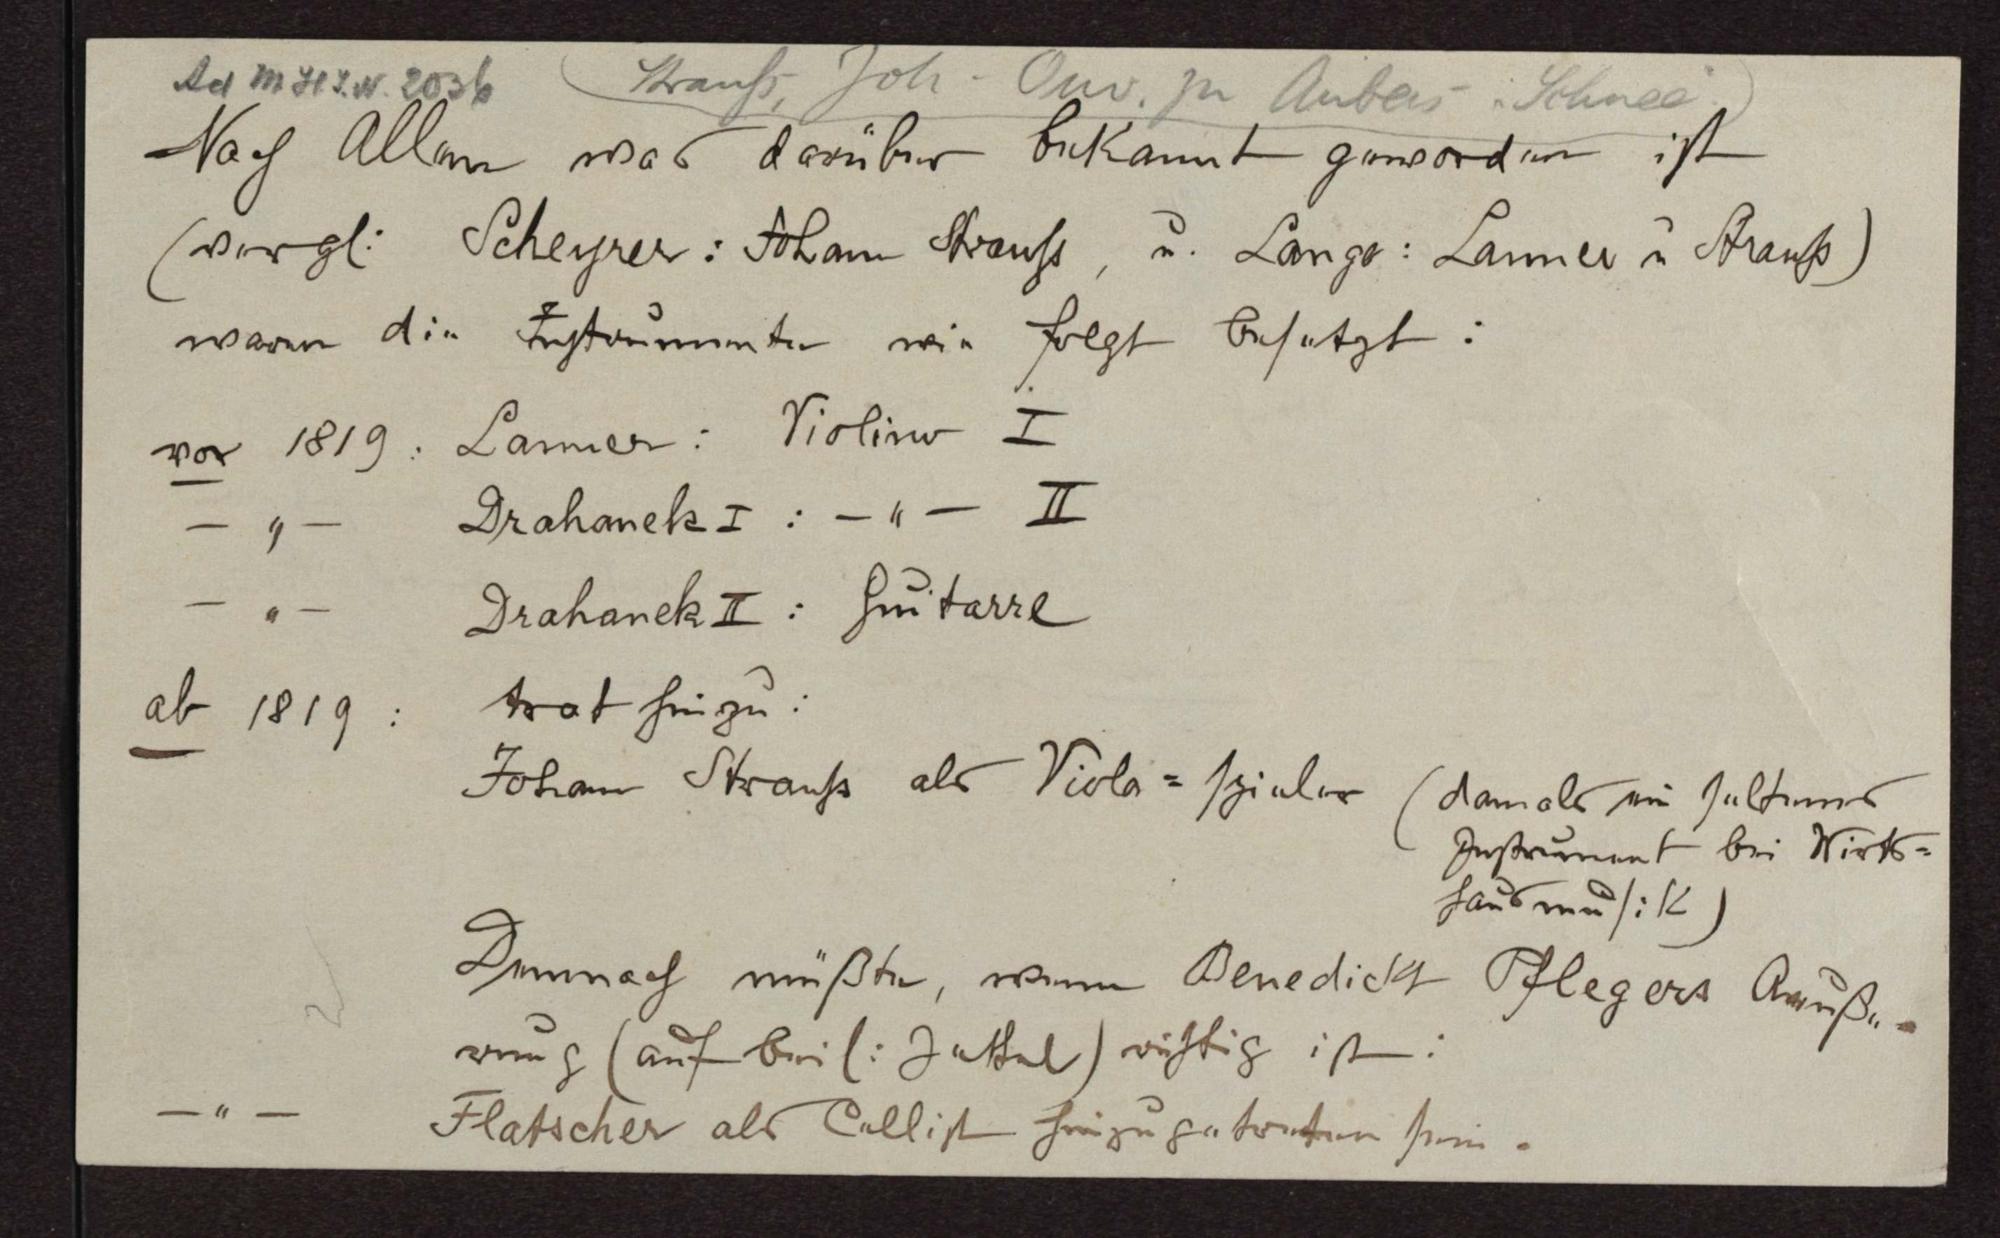 Ad M H I.N. 2036 (Strauß, Joh - Ouv. zu Aubers "Schnee".)
Nach Allem was darüber bekannt geworden ist
(vergl: Scheyrer: Johann Strauß, u. Lange: Lanner u Strauß)
waren die Instrumente wie folgt besetzt:
vor 1819: Lanner: Violine I
— " — Drahanek I : — " — II
— " — Drahanek II : Guitarre
ab 1819 : trat hinzu:
Johann Strauß als Viola=spieler (damals ein seltenes
Instrument bei Wirts=
hausmusik)
Demnach müßte, wenn Benedickt Pflegers Äuße-
rung (auf beil: Zettel) richtig ist:
— " — Flatscher als Cellist hinzugetreten sein.